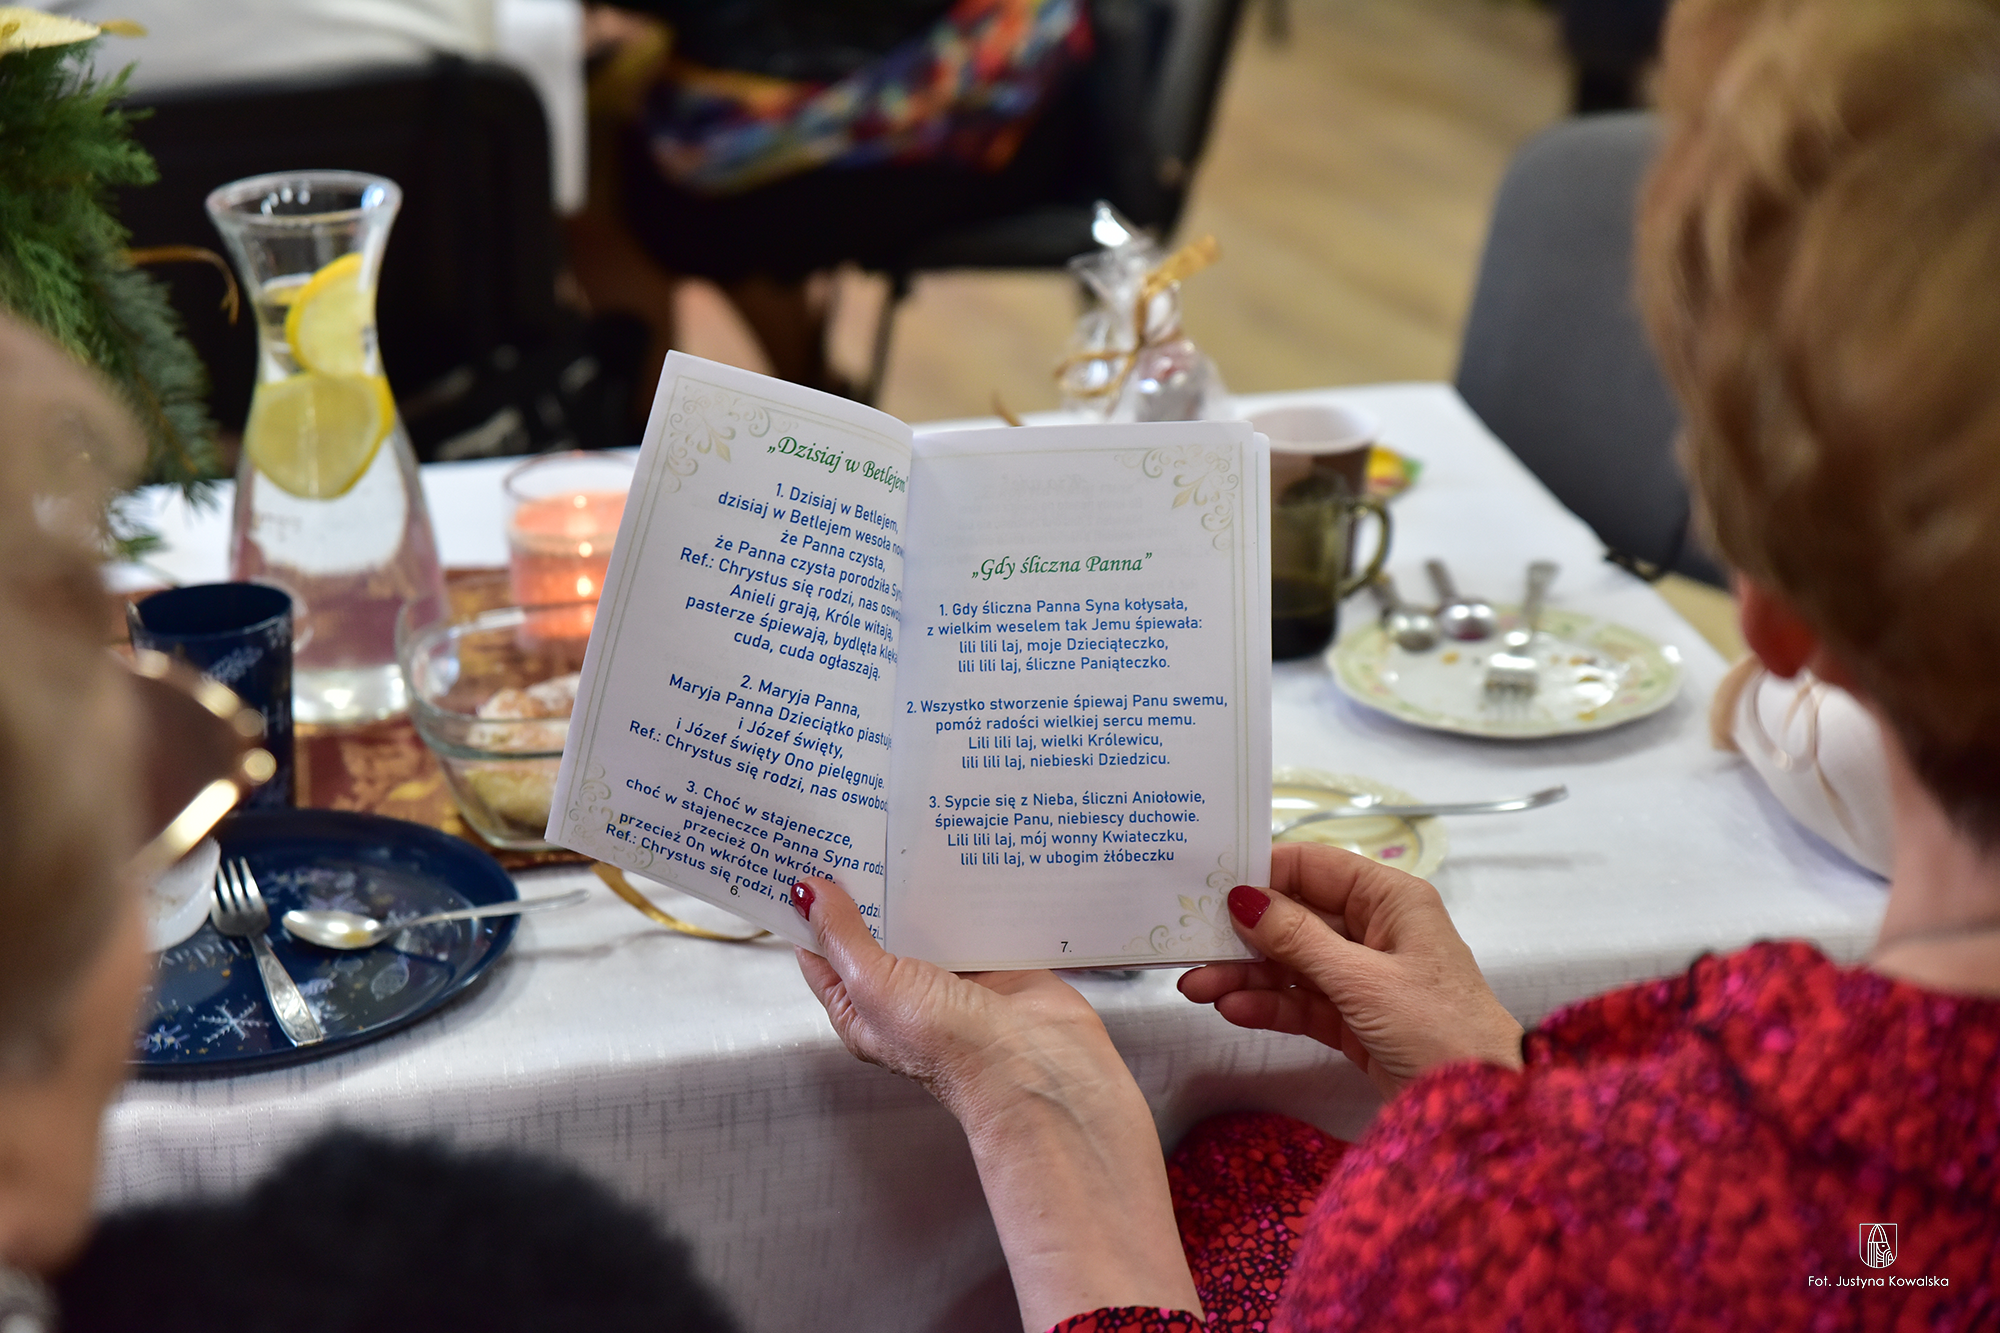 „Dzisiaj w Betlejem"
1. Dzisiaj w Betlejem,
dzisiaj w Betlejem wesoła
że Panna czysta,
że Panna czysta porodziła
Ref.: Chrystus się rodzi, nas
Anieli grają, Króle witają,
pasterze śpiewają, bydlęta
cuda, cuda ogłaszają.
2. Maryja Panna,
Maryja Panna Dzieciątko piastuje,
i Józef święty,
i Józef święty Ono pielęgnuje.
Ref.: Chrystus się rodzi, nas
3. Choć w stajeneczce,
choć w stajeneczce Panna Syna
przecież On wkrótce,
przecież On wkrótce
Ref.: Chrystus się rodzi,
6.
„Gdy śliczna Panna”
1. Gdy śliczna Panna Syna kołysała,
z wielkim weselem tak Jemu śpiewała:
lili lili laj, moje Dzieciąteczko,
lili lili laj, śliczne Paniąteczko.
2. Wszystko stworzenie śpiewaj Panu swemu,
pomóż radości wielkiej sercu memu.
Lili lili laj, wielki Królewicu,
lili lili laj, niebieski Dziedzicu.
3. Sypcie się z Nieba, śliczni Aniołowie,
śpiewajcie Panu, niebiescy duchowie.
Lili lili laj, mój wonny Kwiateczku,
lili lili laj, w ubogim żłóbeczku
7.
Fot. Justyna Kowalska